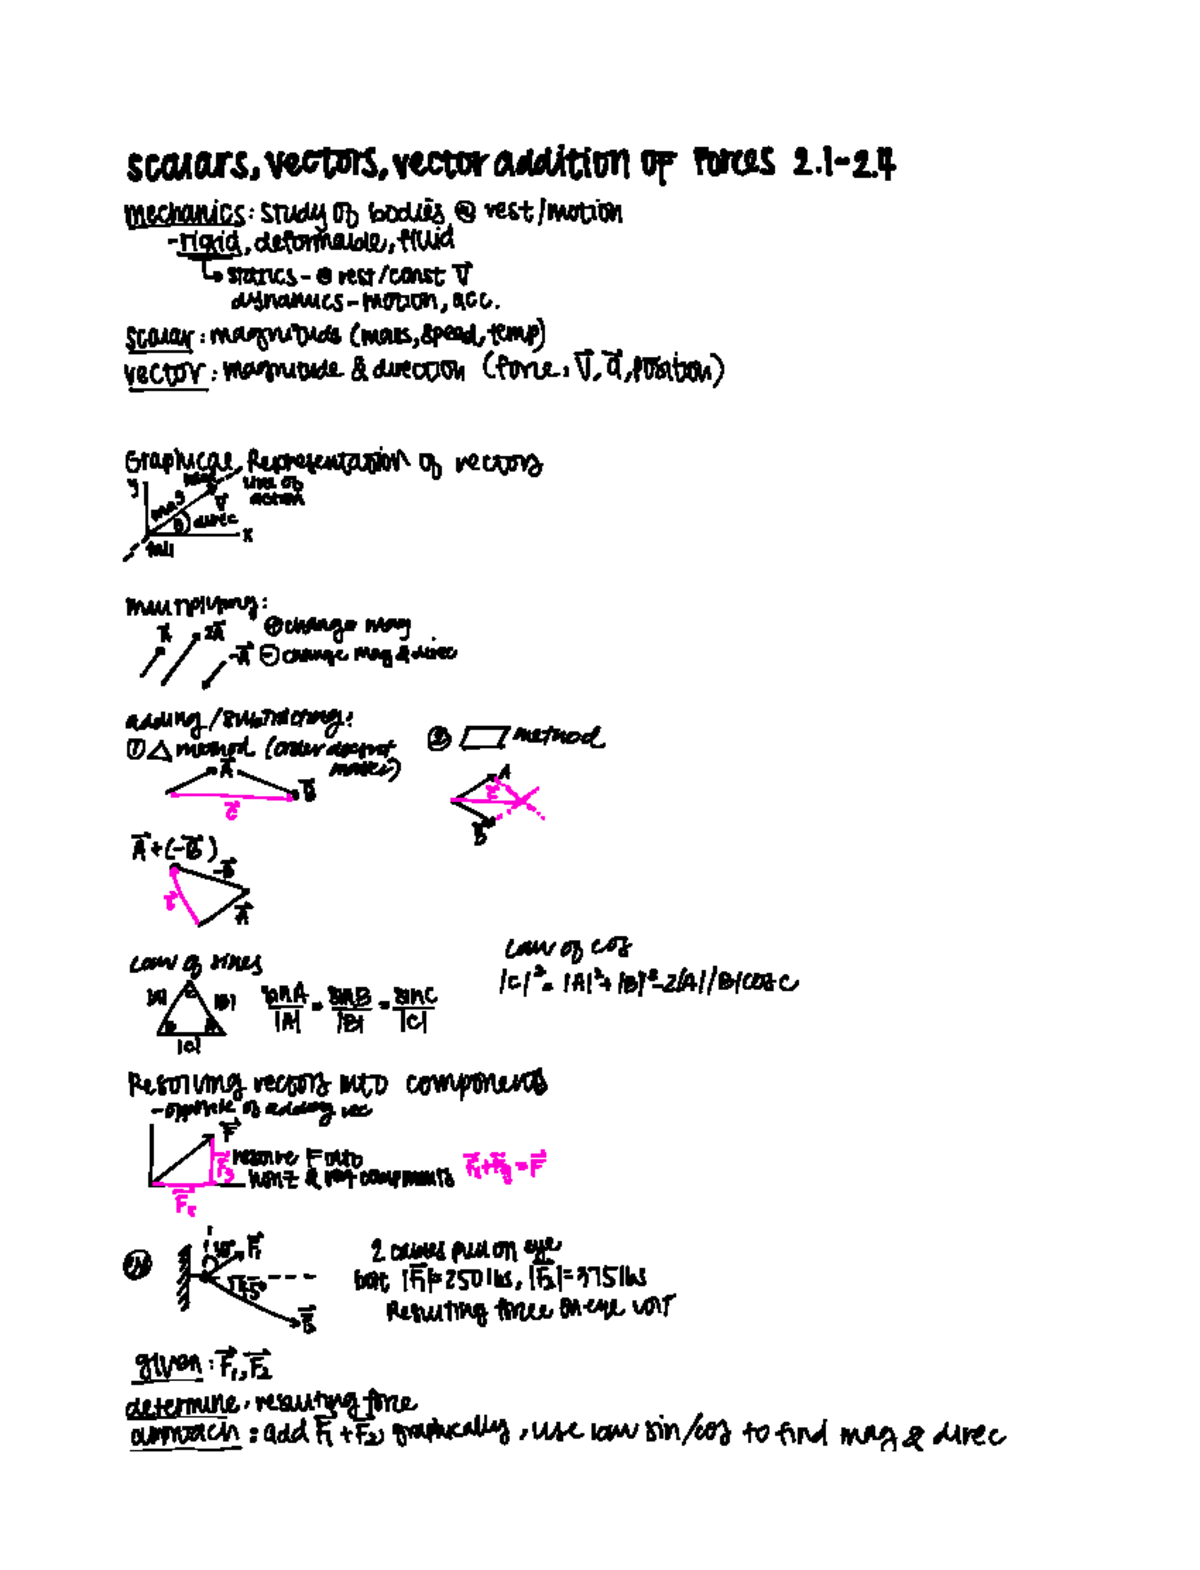 scalars, vectors, vector addition of forces 2.1-2.4
mechanics: study of bodies @ rest/motion
-rigid, deformable, fluid
↳ statics - @ rest/const V⃗
dynamics - motion, acc.
scalar: magnitude (mass, speed, temp)
vector: magnitude & direction (force, V⃗, a⃗, position)
Graphical Representation of vectors
y
head
line of
action
mag
V⃗
θ
direc
x
tail
multiplying:
A⃗
2A⃗
-A⃗
⊕ change mag
⊖ change mag & direc
adding/subtracting:
① △ method (order doesn't
matter)
A⃗
B⃗
C⃗
② ▱ method
A
C⃗
B
A⃗+(-B⃗)
-B⃗
A⃗
Law of sines
|A|
|B|
|C|
sinA/|A| = sinB/|B| = sinC/|C|
Law of cos
|C|² = |A|²+|B|²-2|A||B|cos c
Resolving vectors into components
-opposite of adding vec
F⃗
resolve F into
horiz & vert components
ex
F⃗₁
45°
2 cables pull on eye
bolt, |F⃗₁|=250lbs, |F⃗₂|=375lbs
Resulting force on eye bolt
given: F⃗₁, F⃗₂
determine: resulting force
approach: add F⃗₁+F⃗₂ graphically, use law sin/cos to find mag & direc